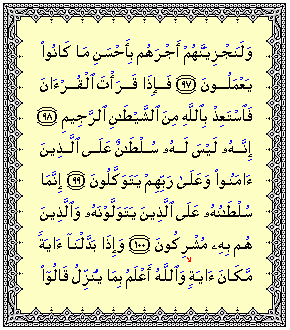 وَلَنَجْزِيَنَّهُمْ أَجْرَهُم بِأَحْسَنِ مَا كَانُوا۟
يَعْمَلُونَ ٩٧ فَإِذَا قَرَأْتَ ٱلْقُرْءَانَ
فَٱسْتَعِذْ بِٱللَّهِ مِنَ ٱلشَّيْطَٰنِ ٱلرَّجِيمِ ٩٨
إِنَّهُۥ لَيْسَ لَهُۥ سُلْطَٰنٌ عَلَى ٱلَّذِينَ
ءَامَنُوا۟ وَعَلَىٰ رَبِّهِمْ يَتَوَكَّلُونَ ٩٩ إِنَّمَا
سُلْطَٰنُهُۥ عَلَى ٱلَّذِينَ يَتَوَلَّوْنَهُۥ وَٱلَّذِينَ
هُم بِهِۦ مُشْرِكُونَ ١٠٠ وَإِذَا بَدَّلْنَآ ءَايَةً
مَّكَانَ ءَايَةٍ وَٱللَّهُ أَعْلَمُ بِمَا يُنَزِّلُ قَالُوٓا۟